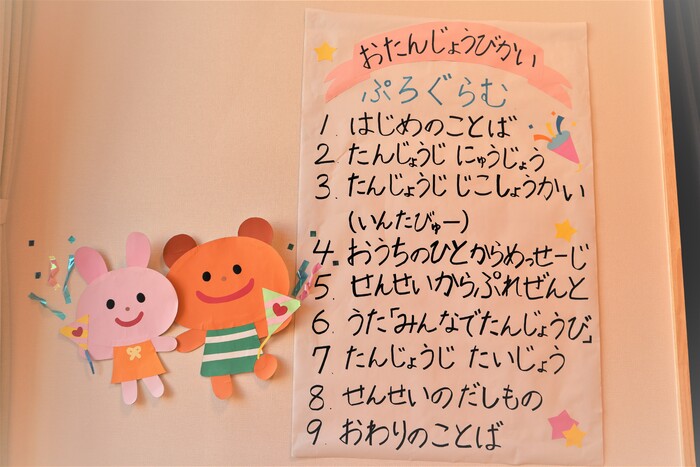 おたんじょうびかい
ぷろぐらむ
1. はじめのことば
2. たんじょうじ にゅうじょう
3. たんじょうじ じこしょうかい
(いんたびゅー)
4. おうちのひとからめっせーじ
5. せんせいから,ぷれぜんと
6. うた「みんなでたんじょうび」
7 たんじょうじ たいじょう
8 せんせいのだしもの
9 おわりのことば